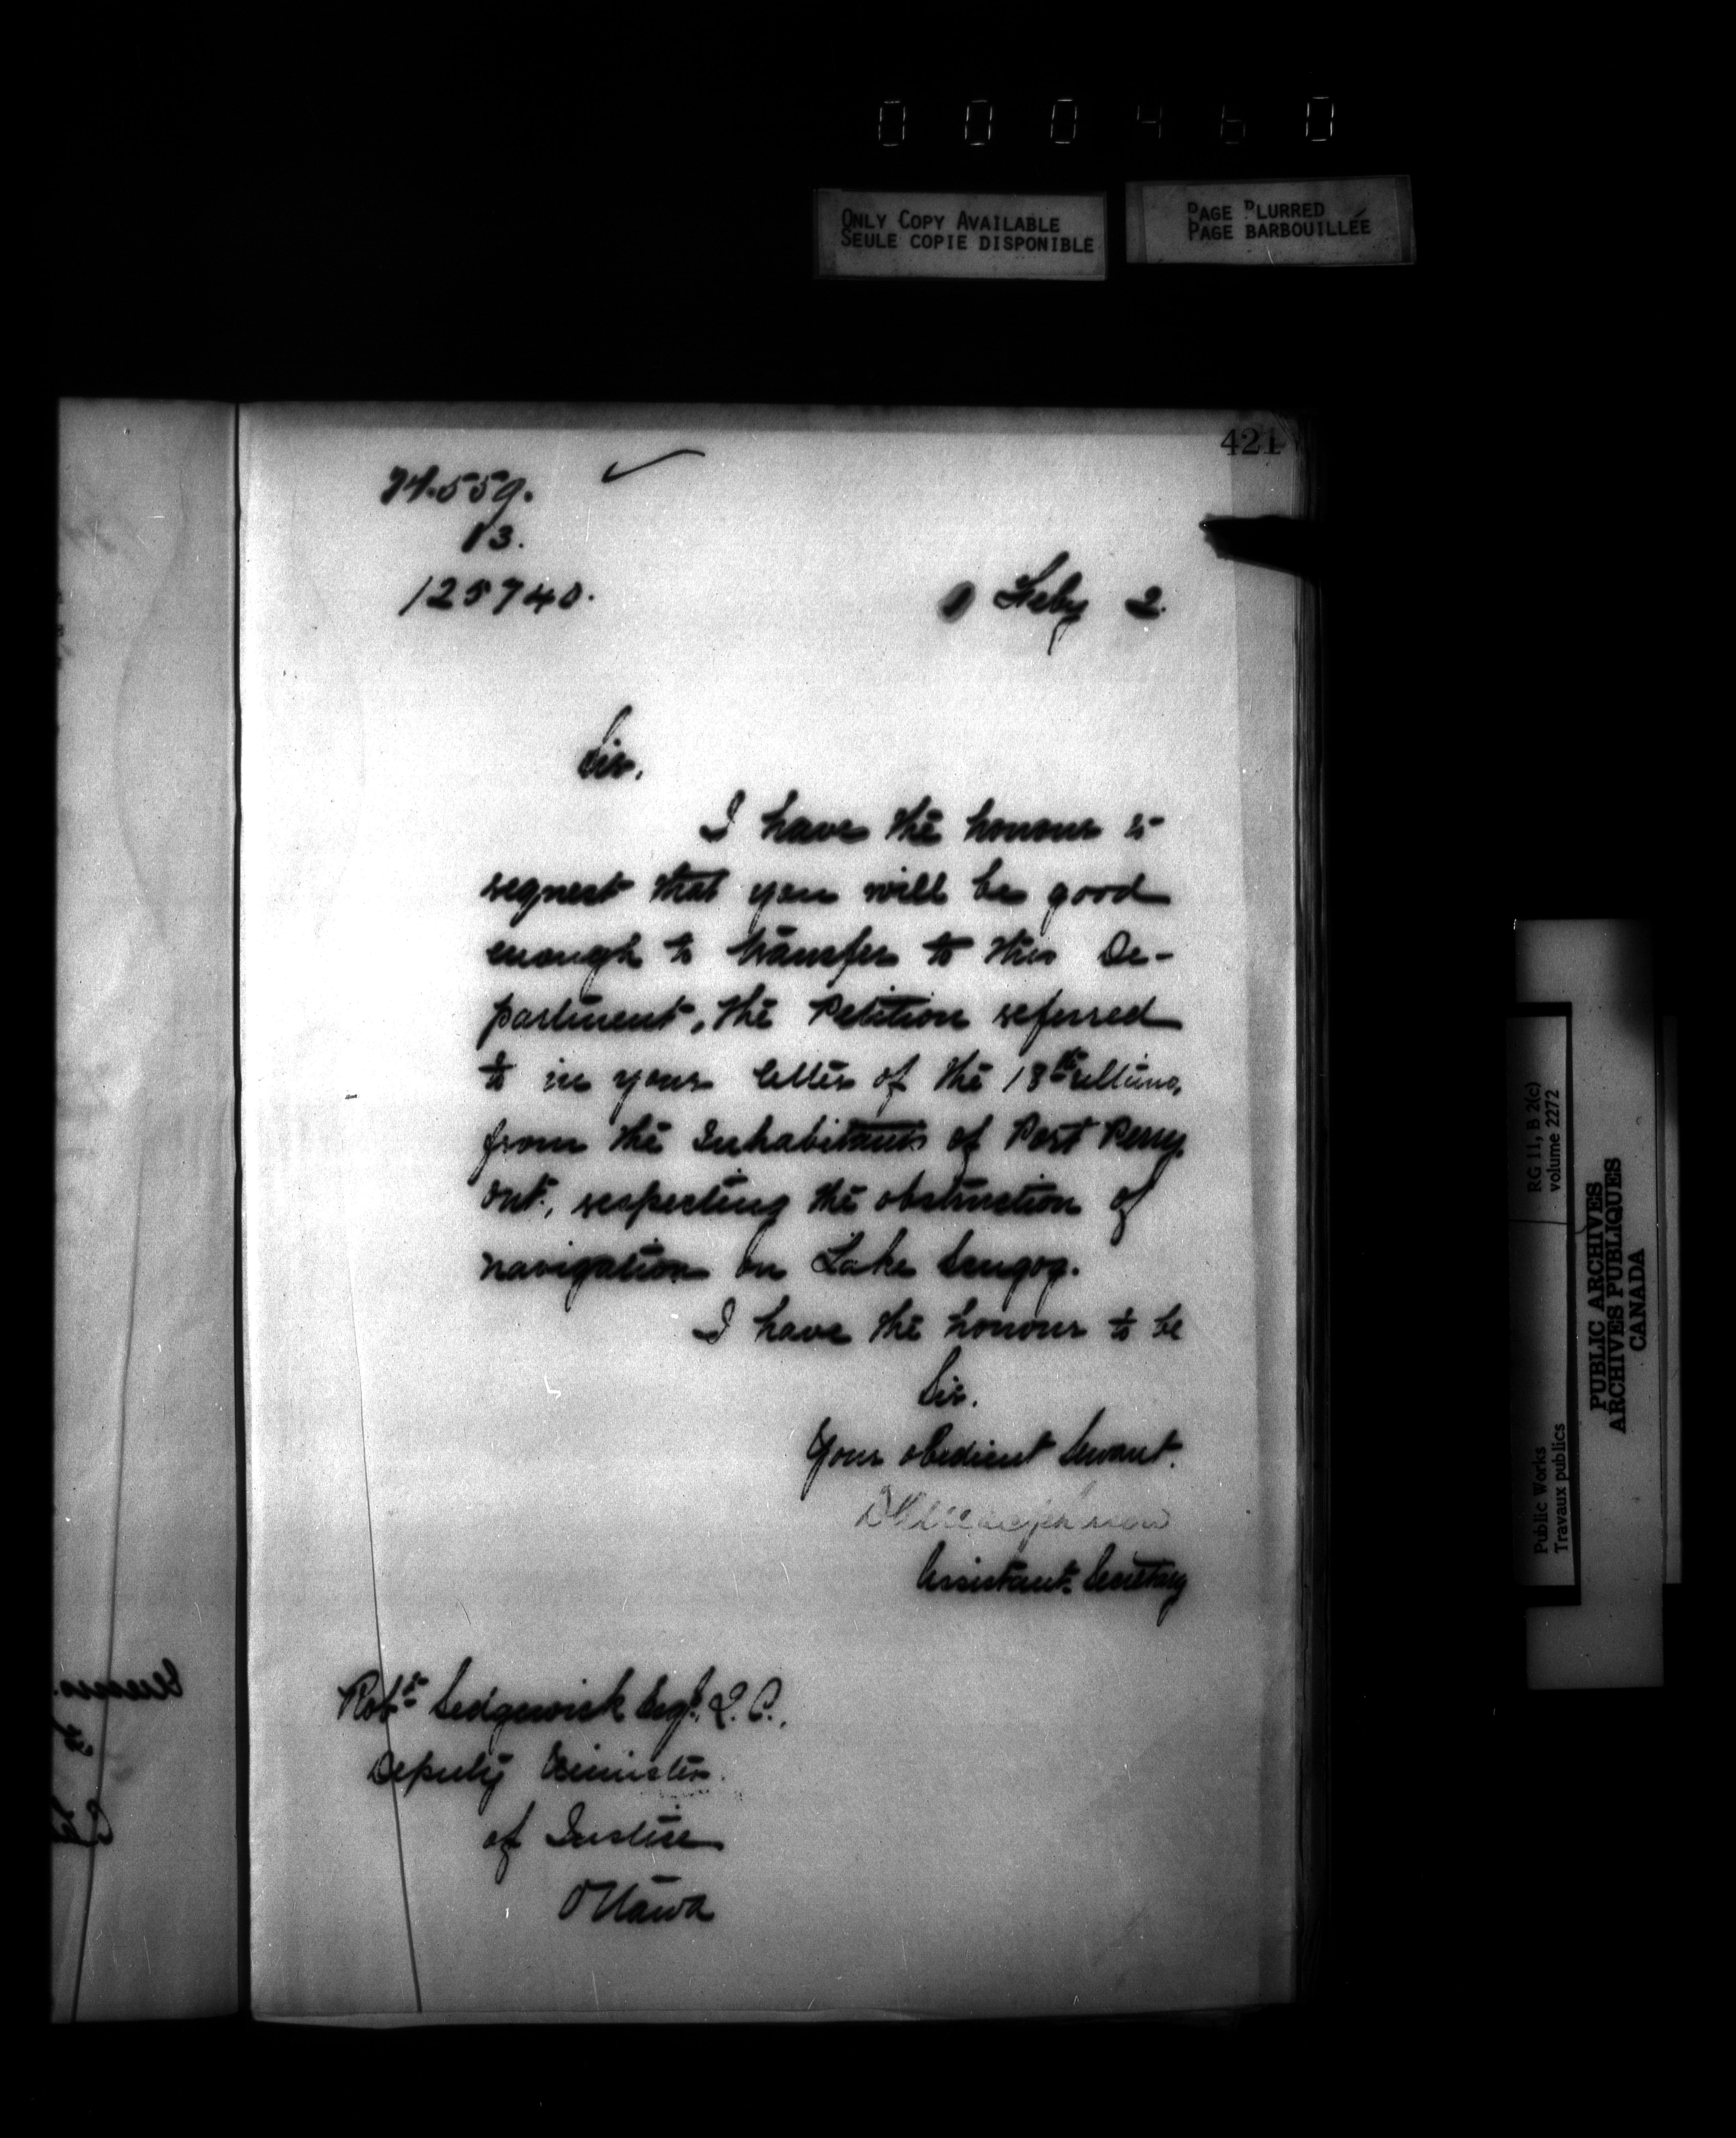 000460
ONLY COPY AVAILABLE
SEULE COPIE DISPONIBLE
PAGE BLURRED
PAGE BARBOUILLÉE
421
74.559.
13.
125740.
Feby 2.
Sir,
I have the honour to
request that you will be good
enough to transfer to this De-
partment, the Petition referred
to in your letter of the 18th ultimo,
from the Inhabitants of Port Perry,
Ont., respecting the obstruction of
navigation on Lake Scugog.
I have the honour to be
Sir,
Your obedient Servant.
Assistant Secretary
Robt Sedgewick Esq. Q.C.,
Deputy Minister
of Justice
Ottawa
RG 11, B 2(c)
volume 2272
Public Works
Travaux publics
PUBLIC ARCHIVES
ARCHIVES PUBLIQUES
CANADA